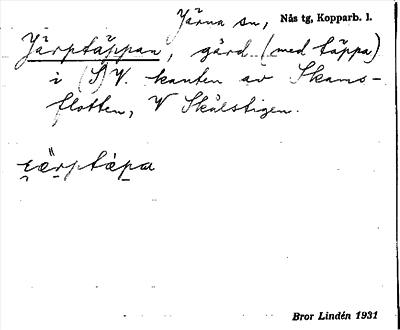 Järna sn, Nås tg, Kopparb. l.
Järptäppan, gård (med täppa)
i (S)V. kanten av Skams-
flotten, V Skålstigen.
Bror Lindén 1931